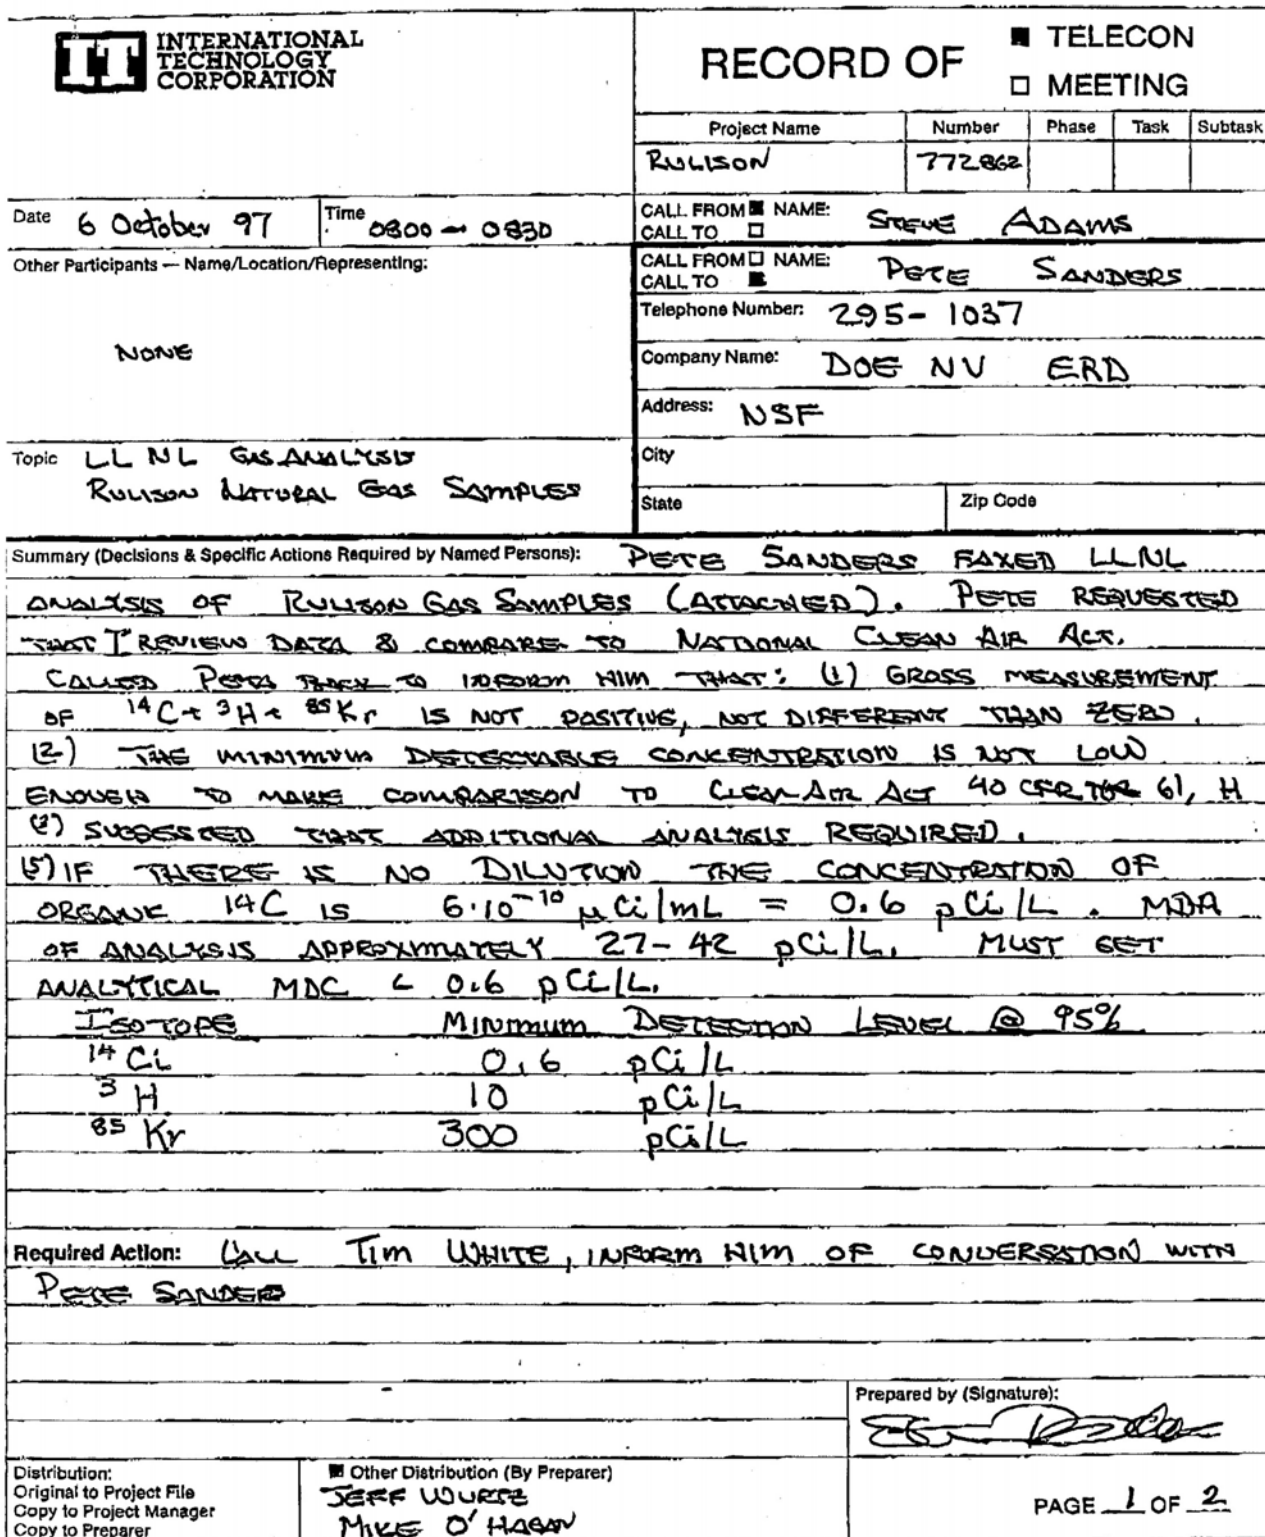 IT INTERNATIONAL
TECHNOLOGY
CORPORATION
RECORD OF
■ TELECON
□ MEETING
Project Name Number Phase Task Subtask
RULISON 772862
Date 6 October 97 Time 0800 - 0830
CALL FROM ■ NAME: STEVE ADAMS
CALL TO □
Other Participants — Name/Location/Representing:
NONE
CALL FROM □ NAME: PETE SANDERS
CALL TO ■
Telephone Number: 295-1037
Company Name: DOE NV ERD
Address: NSF
Topic LLNL GAS ANALYSIS
RULISON NATURAL GAS SAMPLES
City
State Zip Code
Summary (Decisions & Specific Actions Required by Named Persons): PETE SANDERS FAXED LLNL
ANALYSIS OF RULISON GAS SAMPLES (ATTACHED). PETE REQUESTED
THAT I REVIEW DATA & COMPARE TO NATIONAL CLEAN AIR ACT.
CALLED PETE BACK TO INFORM HIM THAT: (1) GROSS MEASUREMENT
OF 14C + 3H + 85Kr IS NOT POSITIVE, NOT DIFFERENT THAN ZERO.
(2) THE MINIMUM DETECTABLE CONCENTRATION IS NOT LOW
ENOUGH TO MAKE COMPARISON TO CLEAN AIR ACT 40 CFR 61, H
SUGGESTED THAT ADDITIONAL ANALYSIS REQUIRED.
IF THERE IS NO DILUTION THE CONCENTRATION OF
ORGANIC 14C IS 6·10⁻¹⁰ μCi/mL = 0.6 pCi/L. MDA
OF ANALYSIS APPROXIMATELY 27-42 pCi/L. MUST GET
ANALYTICAL MDC < 0.6 pCi/L.
ISOTOPE MINIMUM DETECTION LEVEL @ 95%
14 Ci 0.6 pCi/L
3 H 10 pCi/L
85 Kr 300 pCi/L
Required Action: CALL TIM WHITE, INFORM HIM OF CONVERSATION WITH
PETE SANDERS
Prepared by (Signature):
Distribution:
Original to Project File
Copy to Project Manager
Copy to Preparer
■ Other Distribution (By Preparer)
JEFF WURTZ
MIKE O'HAGAN
PAGE 1 OF 2